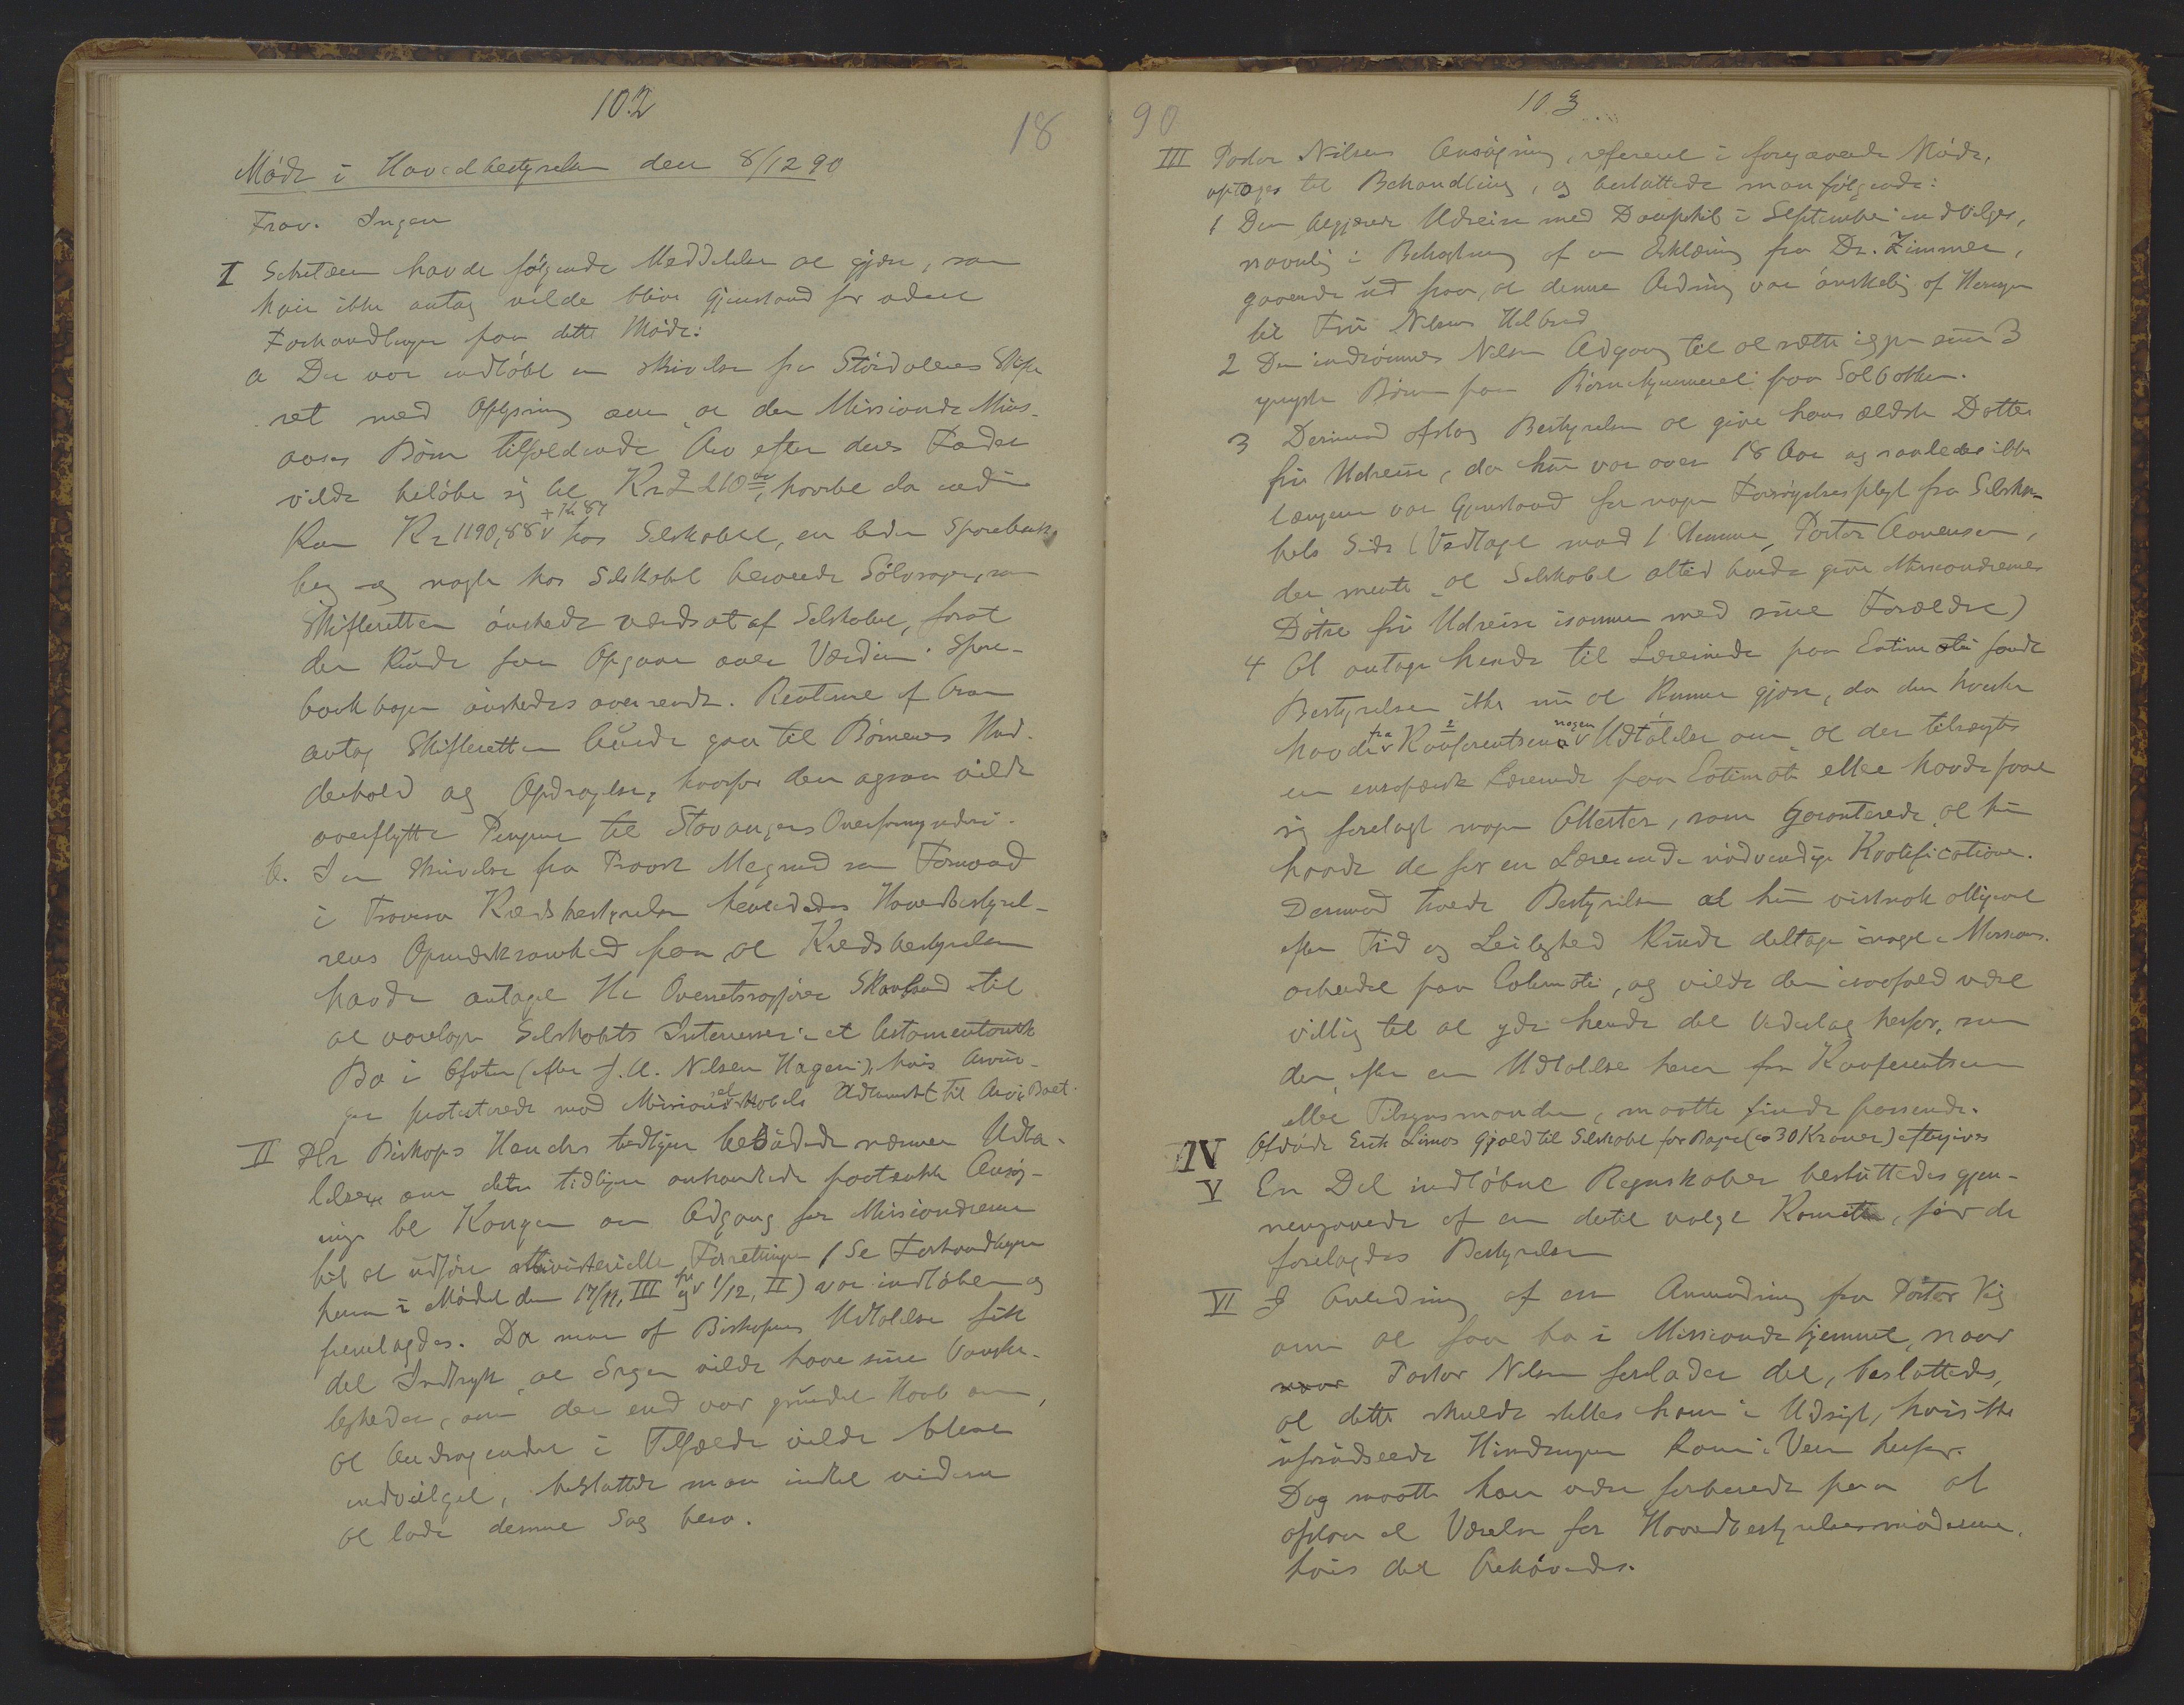 102
18
Møde i Hovedbestyrelsen den 8/12 90
Frav. Ingen
I Sekretæren havde følgende Meddelelser at gjøre, som
han ikke antog vilde blive Gjenstand for videre
Forhandlinger paa dette Møde:
a Der var indløbet en Skrivelse fra Stördalens Skifte
ret med Oplysning om at den Missionær
Børn tilfaldende Arv efter deres Fader
vilde beløbe sig til Kr 2210, hvortil da
Kom Kr 1190,88 + Kr 87 hos Selskabet, en liden Sparebank
bog og nogle hos Selskabet beroende Sølvsager, som
Skifteretten ønskede vurderet af Selskabet, forat
den kunde faa Opgave over Værdien. Spare-
bankbogen ønskedes oversendt. Renterne af Arven
antog Skifteretten burde gaa til Børnenes Un-
derhold og Opdragelse, hvorfor den ogsaa vilde
overflytte Pengene til Stavangers Overformynderi.
b. I en Skrivelse fra Provst Mæ som Formand
i Tromsø Kredsbestyrelse henledes Hovedbestyrel-
sens Opmærksomhed paa at Kredsbestyrelsen
havde antaget Hr Overretssagfører Skavland til
at varetage Selskabets Interesser i et testamentarisk
Bo i Ofoten (efter J. A. Nilsen Hagen), hvis Arvin-
ger protesterede mod Missionsselskabets Adkomst til Arv i Boet.
II Hr Biskop Heuchs tidligere bebudede nærmere Udta-
lelser om den tidligere omhandlede paatænkte Ansøg-
ning til Kongen om Adgang for Missionærerne
til at udføre ministerielle Forretninger (Se Forhandlingerne
herom i Mødet den 17/11, III og fr 1/12, II) var indløben og
fremlagdes. Da man af Biskopens Udtalelse fik
det Indtryk at Sagen vilde have sine Vanske-
ligheder, om der end var grundet Haab om,
at Andragendet i Tilfælde vilde blive
indvilget, besluttede man indtil videre
at lade denne Sag bero.
90
103
III Pastor Nilsens Ansøgning, refereret i foregaaende Møde,
optoges til Behandling, og besluttede man følgende:
1 Den begjærede Udreise med Dampskib i September indvilges,
navnlig i Betragtning af en Erklæring fra Dr. Zimmer,
gaaende ud paa, at denne Ordning var ønskelig af Hensyn
til Fru Nilsens Helbred
2 Der indrømmes Nilsen Adgang til at sætte igjen sine 3
yngste Børn paa Børnehjemmet paa Solbakken.
3 Derimod afslog Bestyrelsen at give hans ældste Datter
fri Udreise, da hun var over 18 Aar og saaledes ikke
længere var Gjenstand for nogen Forsørgelsespligt fra Selska-
bets Side (Vedtaget mod 1 Stemme, Pastor Aanensen,
der mente at Selskabet altid burde give Missionærernes
Døtre fri Udreise isammen med sine Forældre)
4 At antage hende til Lærerinde paa Eotimati fandt
Bestyrelsen ikke nu at kunne gjøre, da den hverken
havde fra Konferentsen nogen Udtalelse om at der tiltrængtes
en europæisk Lærerinde paa Eotimati eller havde faaet
sig forelagt nogen Attester, som garanterede at hun
havde de for en Lærerinde nødvendige Kvalificationer.
Derimod troede Bestyrelsen at hun vistnok alligevel
efter Tid og Leilighed kunde deltage i noget Missions-
arbeide paa Eotimati, og vilde den isaafald være
villig til at yde hende det Vederlag herfor, som
den, efter en Udtalelse herom fra Konferentsen
eller Tilsynsmanden, maatte finde passende.
IV Afdøde Erik Limos Gjæld til Selskabet for Bøger (ca 30 Kroner) eftergives
V En Del indløbne Regnskaber besluttedes gjen-
nemgaaede af en dertil valgt Komite, før de
forelagdes Bestyrelsen
VI I Anledning af en Anmodning fra Pastor Vig
om at faa bo i Missionærhjemmet, naar
naar Pastor Nilsen forlader det, besluttedes,
at dette skulde stilles ham i Udsigt, hvis ikke
uforudseede Hindringer kom i Veien herfor.
Dog maatte han være forberedt paa at
afstaa et Værelse for Hovedbestyrelsesmøderne,
hvis det behøvedes.